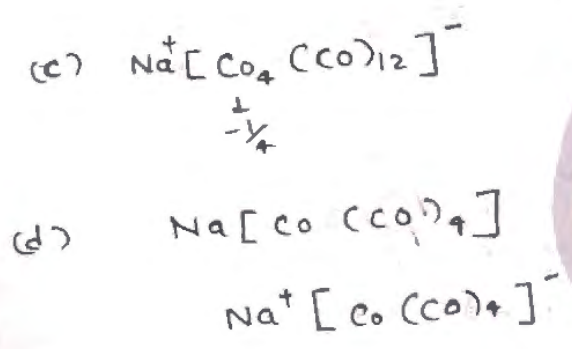 (c) Na⁺[Co₄(CO)₁₂]⁻
↓
-1/4
(d) Na[Co(CO)₄]
Na⁺[Co(CO)₄]⁻